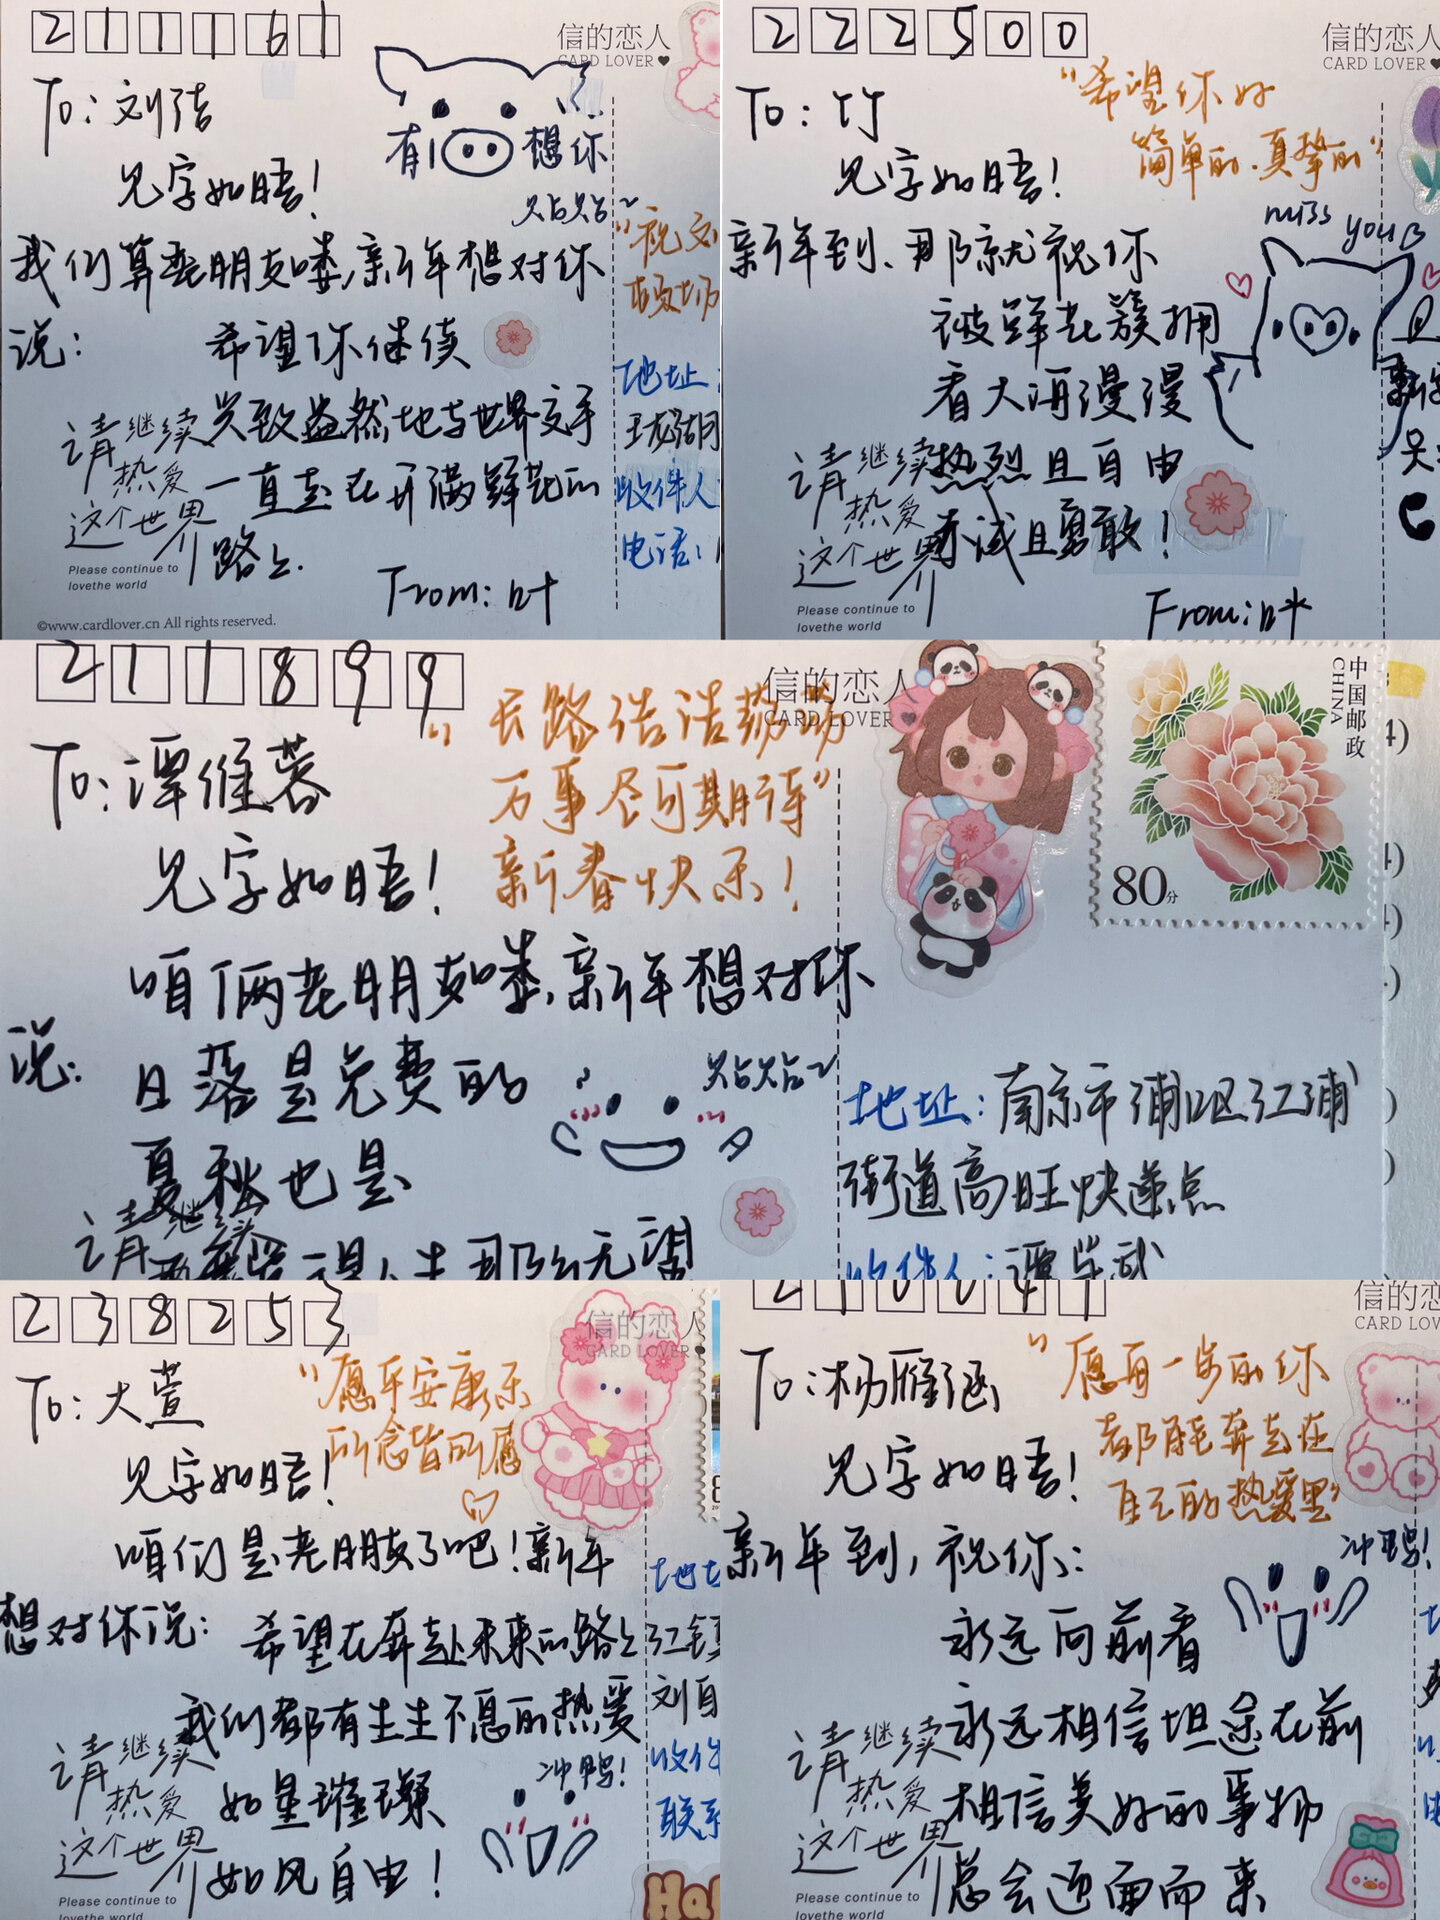 211161
信的恋人
CARD LOVER
To: 刘洁
有 想你
见字如晤!
贴贴~
我们算老朋友喽,新年想对你
说:
希望你继续
兴致盎然地与世界交手
一直走在开满鲜花的
路上.
From: 叶
请继续
热爱
这个世界
Please continue to
lovethe world
©www.cardlover.cn All rights reserved.
"祝
地址:
收件人
电话:
222500
信的恋人
CARD LOVER
To: 竹
"希望你好
简单的.真挚的"
见字如晤!
miss
you
新年到、那就祝你
被鲜花簇拥
看大海漫漫
热烈且自由
赤诚且勇敢!
From: 叶
请继续
热爱
这个世界
Please continue to
lovethe world
211899
信的恋人
CARD LOVER
中国邮政
CHINA
80分
To: 谭维蓉
"长路浩浩荡荡
万事尽可期待"
新春快乐!
见字如晤!
咱俩老朋友喽,新年想对你
说:
日落是免费的
贴贴~
夏秋也是
请继续
地址:南京市浦口区江浦
街道高旺快递点
收件人:
238253
信的恋人
CARD LOVER
To: 大萱
"愿平安康乐
所念皆所愿
见字如晤!
咱们是老朋友了吧!新年
想对你说:
希望在奔赴未来的路上
我们都有生生不息的热爱
如星璀璨
如风自由!
冲鸭!
请继续
热爱
这个世界
Please continue to
lovethe world
地址
江镇
收件
联系
信的恋人
CARD LOVER
To: 杨雁涵
"愿每一步的你
都能奔走在
自己的热爱里"
见字如晤!
新年到,祝你:
冲鸭!
永远向前看
永远相信坦途在前
相信美好的事物
总会迎面而来
请继续
热爱
这个世界
Please continue to
lovethe world